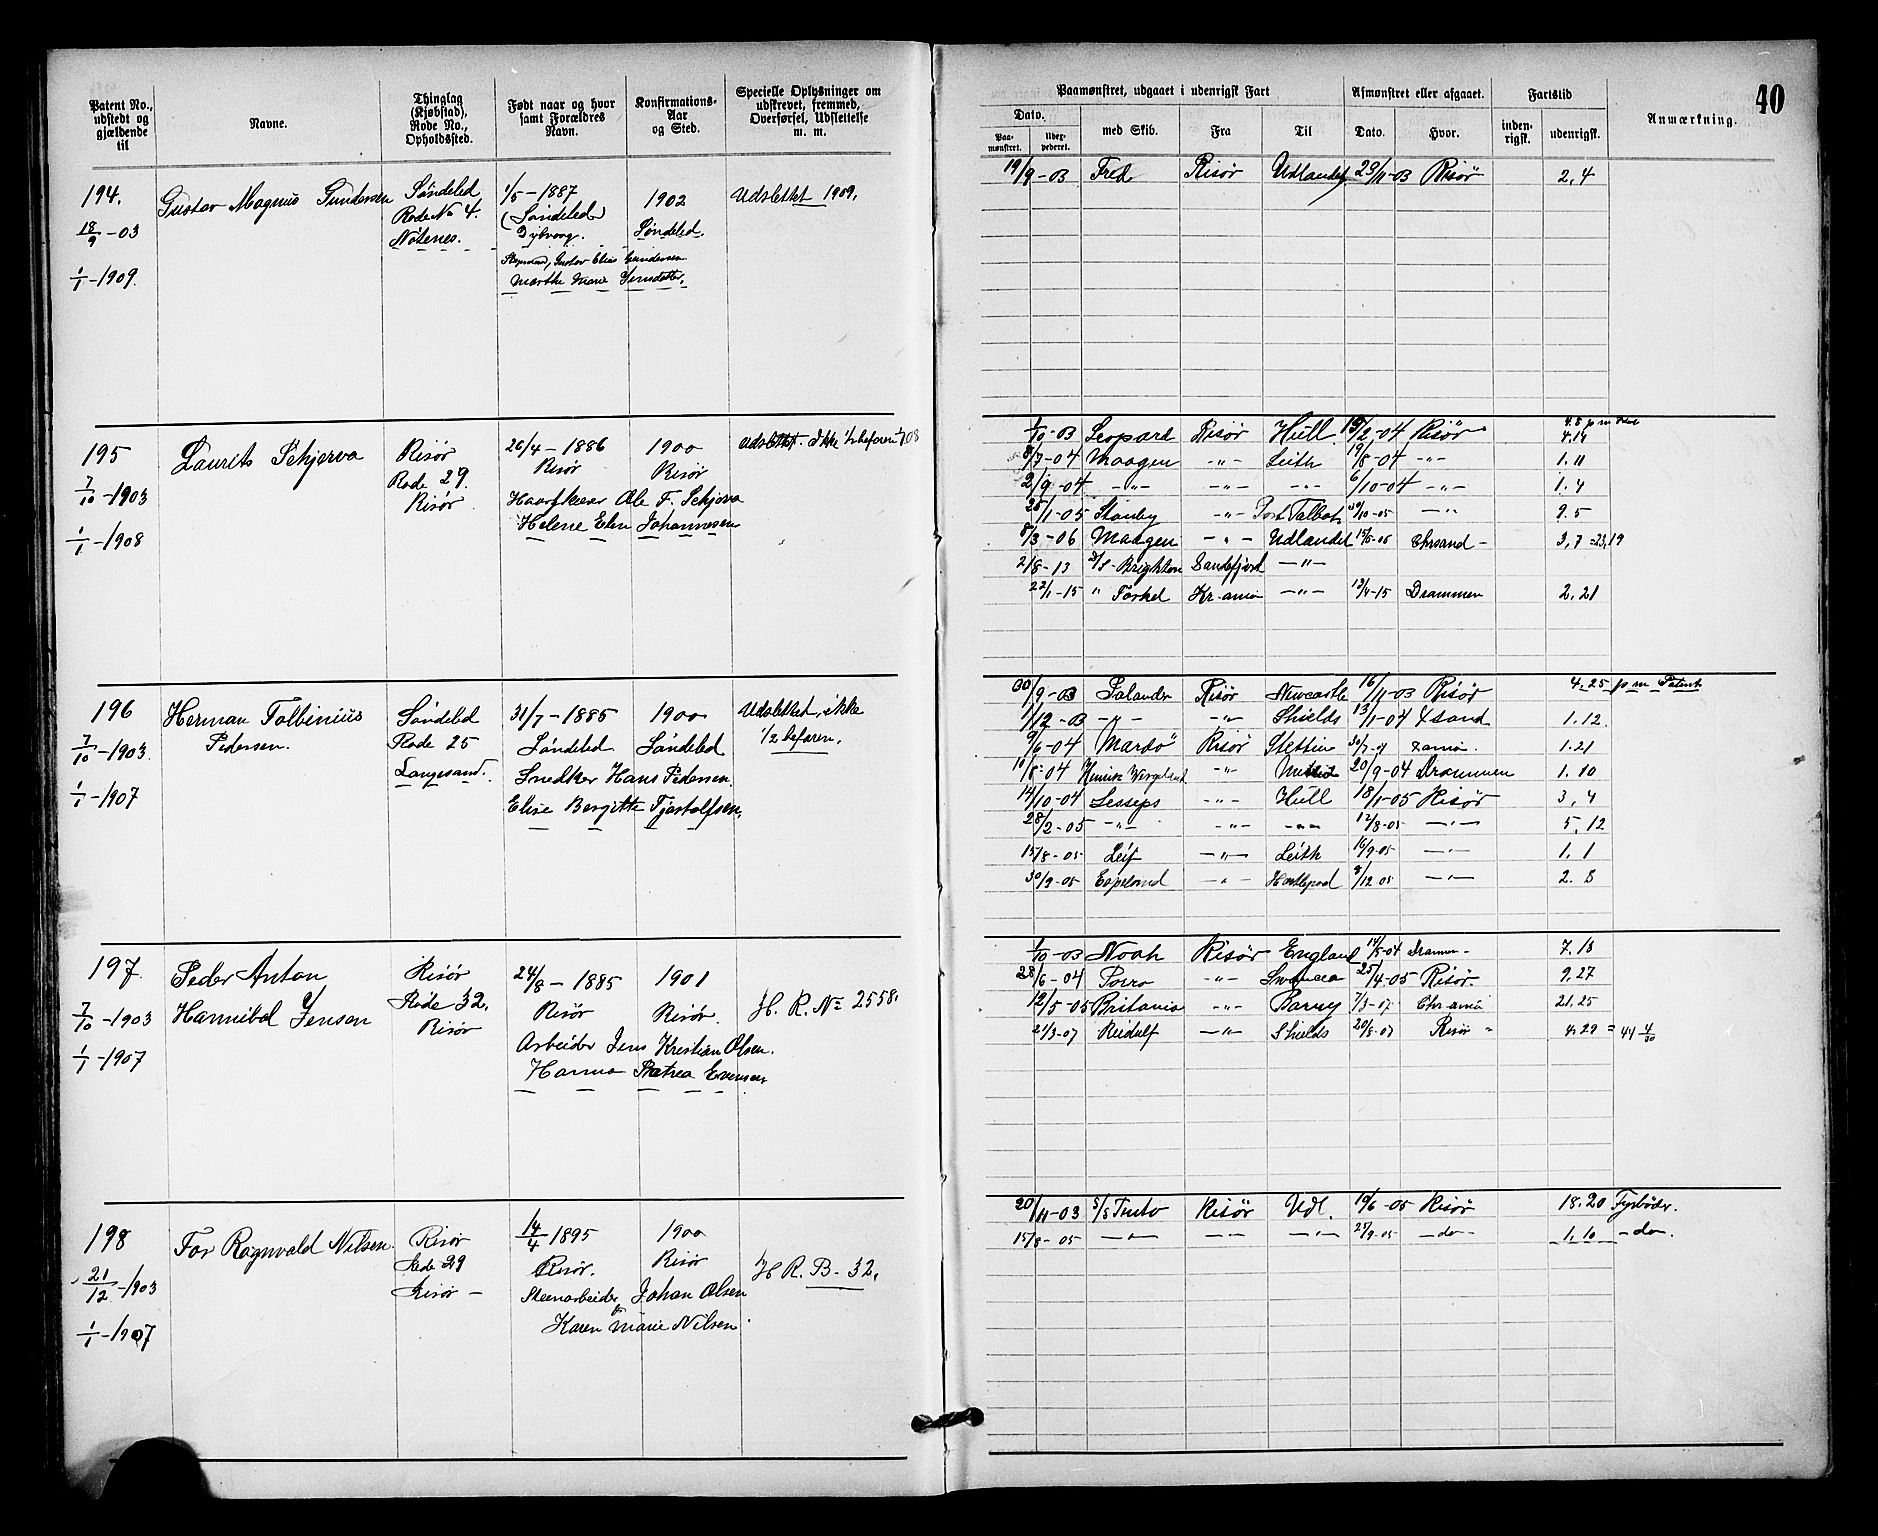 Patent No., udstedt og gjældende til
Navne.
Thinglag (Kjøbstad), Rode No., Opholdssted.
Født naar og hvor samt Forældres Navn.
Konfirmations-Aar og Sted.
Specielle Oplysninger om udskrevet, fremmed, Overførsel, Udslettelse m. m.
Paamønstret, udgaaet i udenrigsk Fart
Afmønstret eller afgaaet.
Fartstid
Anmærkning.
40
Dato.
Paa-mønstret.
Uder-pederet.
med Skib.
Fra
Til
Dato.
Hvor.
inden-rigsk.
udenrigsk.
194.
18/9 - 03
1/1 - 1909
Gustav Magnus Gundersen
Søndeled
Rode No 4.
Nötenes.
1/5 - 1887
(Søndeled)
Dybvaag.
Gustav Elias Gundersen
Marthe Marie Jensdatter.
1902
Søndeled.
Udslettet 1909.
19/9 - 03 Fred Risør Udlandet 23/11-03 Risør 2,4
195
7/10 - 1903
1/1 - 1908
Laurits Schjerva
Risör
Rode 29.
Risör
26/4 - 1886
Risör
Ole F. Schjerva
Helene Elen Johannesen
1900
Risör
Udslettet. Ikke 1/2 befaren 1/1 08
4.8 p m
1/10-03 Leopard Risør Hull 13/2-04 Risør 4.14
8/7-04 Maagen -"- Leith 19/8-04 -"- 1.11
2/9-04 -"- -"- -"- 6/10-04 -"- 1.4
25/1-05 Stanley -"- Port Talbot 30/10-05 -"- 9.5
8/3-06 Maagen -"- Udlandet 15/6-06 Chrsand - 3,7 = 23,19
2/8-13 S/S Brighton Sandefjord -"-
22/1-15 " Torkel Kr-ania -"- 13/4-15 Drammen 2.21
196
7/10 - 1903
1/1 - 1907
Herman Tolbinius
Pedersen.
Søndeled
Rode 25
Langesand.
31/7 - 1885
Søndeled
Snedker Hans Pedersen
Elise Bergitte Tjostolfsen.
1900
Søndeled
Udslettet, ikke
1/2 befaren.
30/9-03 Salander Risør Newcastle 16/11-03 Risør 4.25 p m Patent
1/12-03 -"- -"- Shields 13/1-04 Xsand 1.12.
9/6-04 "Mardö" Risør Stettin 30/7-04 Xania. 1.21
10/8-04 Henrik Wergeland -"- 20/9-04 Drammen 1.10
14/10-04 Lesseps -"- Hull 18/1-05 Risør 3,4
28/2-05 -"- -"- -"- 12/8-05 -"- 5.12
15/8-05 Leif -"- Leith 16/9-05 -"- 1.1
30/9-05 Espeland -" 8/12 05 -"- 2.8
197
7/10 - 1903
1/1 - 1907
Peder Anton
Hannibal Jensen
Risør
Rode 32.
Risør
24/8 - 1885
Risør
Arbeider Jens Kristian Olsen.
Hanna Petrea Evensen
1901
Risør.
H. R. No 2558.
1/10-03 Noah Risør England 14/5-04 Drammen - 7.13
28/6-04 Porro -"- Swansea 25/4-05 Risør. 9,27
12/5-05 Britania -"- Barry 7/3-07 Chr-ania 21.25
21/3-07 Rudolf -"- Shields 20/8-07 Risør " 4.29 = 44 4/30
198
21/12 - 1903
1/1 - 1907
Tor Ragnvald Nilsen
Risør
Rode 29
Risør -
14/4 1895
Risør.
Stenarbeider Johan Olsen
Karen Marie Nilsen
1900
Risør
H. R. B - 32.
20/11-03 S/S Tento Risør Udl. 19/6-05 Risør 18.20 Fyrbøder.
15/8-05 -"- -"- -"- 27/9-05 -do- 1.10 -do-